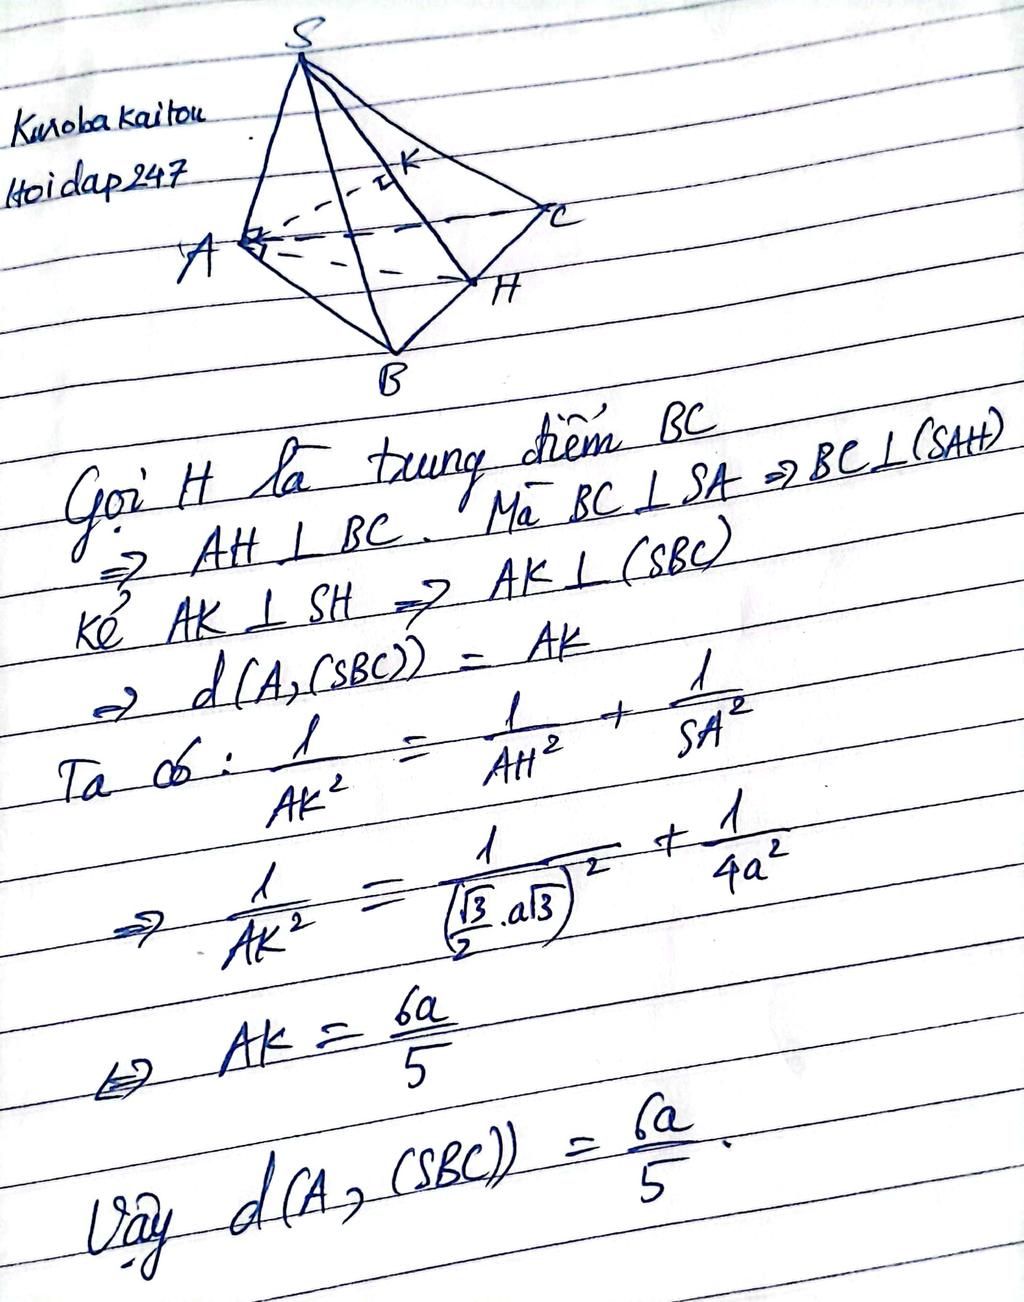 S
Kuroba kaitou
Hoidap247
K
A
C
H
B
Gọi H là trung điểm BC
=> AH ⊥ BC. Mà BC ⊥ SA => BC ⊥ (SAH)
Kẻ AK ⊥ SH => AK ⊥ (SBC)
=> d(A, (SBC)) = AK
Ta có: 1/AK² = 1/AH² + 1/SA²
=> 1/AK² = 1/(√3/2 . a√3)² + 1/4a²
<=> AK = 6a/5
Vậy d(A, (SBC)) = 6a/5.